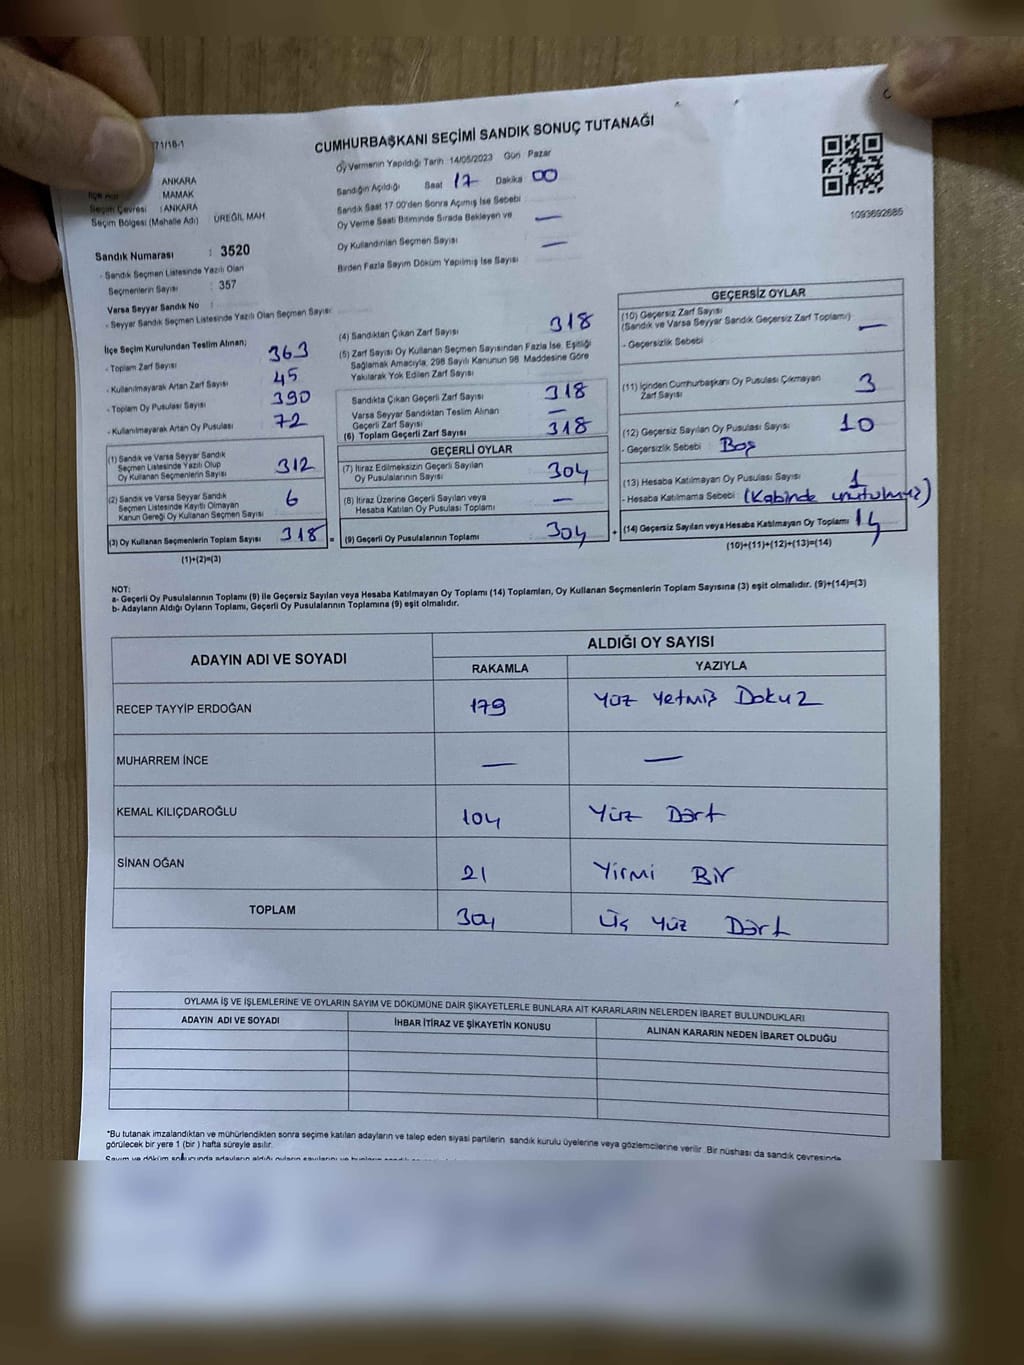 71/18-1
CUMHURBAŞKANI SEÇİMİ SANDIK SONUÇ TUTANAĞI
ANKARA
MAMAK
Seçim Çevresi : ANKARA
Seçim Bölgesi (Mahalle Adı) ÜREĞİL MAH
Oy Vermenin Yapıldığı Tarih 14/05/2023 Gün Pazar
Sandığın Açıldığı Saat 17 Dakika 00
Sandık Saat 17:00'den Sonra Açılmış İse Sebebi
Oy Verme Saati Bitiminde Sırada Bekleyen ve —
Oy Kullandırılan Seçmen Sayısı —
Birden Fazla Sayım Döküm Yapılmış İse Sayısı
1093692685
Sandık Numarası : 3520
- Sandık Seçmen Listesinde Yazılı Olan
Seçmenlerin Sayısı : 357
Varsa Seyyar Sandık No :
- Seyyar Sandık Seçmen Listesinde Yazılı Olan Seçmen Sayısı
İlçe Seçim Kurulundan Teslim Alınan;
- Toplam Zarf Sayısı 363
- Kullanılmayarak Artan Zarf Sayısı 45
- Toplam Oy Pusulası Sayısı 390
- Kullanılmayarak Artan Oy Pusulası 72
(1) Sandık ve Varsa Seyyar Sandık
Seçmen Listesinde Yazılı Olup
Oy Kullanan Seçmenlerin Sayısı 312
(2) Sandık ve Varsa Seyyar Sandık
Seçmen Listesinde Kayıtlı Olmayan
Kanun Gereği Oy Kullanan Seçmen Sayısı 6
(3) Oy Kullanan Seçmenlerin Toplam Sayısı 318 =
(1)+(2)=(3)
(4) Sandıktan Çıkan Zarf Sayısı 318
(5) Zarf Sayısı Oy Kullanan Seçmen Sayısından Fazla İse, Eşitliği
Sağlamak Amacıyla, 298 Sayılı Kanunun 98. Maddesine Göre
Yakılarak Yok Edilen Zarf Sayısı
Sandıkta Çıkan Geçerli Zarf Sayısı 318
Varsa Seyyar Sandıktan Teslim Alınan
Geçerli Zarf Sayısı —
(6) Toplam Geçerli Zarf Sayısı 318
GEÇERLİ OYLAR
(7) İtiraz Edilmeksizin Geçerli Sayılan
Oy Pusulalarının Sayısı 304
(8) İtiraz Üzerine Geçerli Sayılan veya
Hesaba Katılan Oy Pusulası Toplamı —
(9) Geçerli Oy Pusulalarının Toplamı 304 +
GEÇERSİZ OYLAR
(10) Geçersiz Zarf Sayısı
(Sandık ve Varsa Seyyar Sandık Geçersiz Zarf Toplamı) —
- Geçersizlik Sebebi
(11) İçinden Cumhurbaşkanı Oy Pusulası Çıkmayan
Zarf Sayısı 3
(12) Geçersiz Sayılan Oy Pusulası Sayısı 10
- Geçersizlik Sebebi : Boş
(13) Hesaba Katılmayan Oy Pusulası Sayısı 1
- Hesaba Katılmama Sebebi : (Kabinde unutulmuş)
(14) Geçersiz Sayılan veya Hesaba Katılmayan Oy Toplamı 14
(10)+(11)+(12)+(13)=(14)
NOT:
a- Geçerli Oy Pusulalarının Toplamı (9) ile Geçersiz Sayılan veya Hesaba Katılmayan Oy Toplamı (14) Toplamları, Oy Kullanan Seçmenlerin Toplam Sayısına (3) eşit olmalıdır. (9)+(14)=(3)
b- Adayların Aldığı Oyların Toplamı, Geçerli Oy Pusulalarının Toplamına (9) eşit olmalıdır.
ADAYIN ADI VE SOYADI
ALDIĞI OY SAYISI
RAKAMLA YAZIYLA
RECEP TAYYİP ERDOĞAN 179 Yüz Yetmiş Dokuz
MUHARREM İNCE — —
KEMAL KILIÇDAROĞLU 104 Yüz Dört
SİNAN OĞAN 21 Yirmi Bir
TOPLAM 304 Üç Yüz Dört
OYLAMA İŞ VE İŞLEMLERİNE VE OYLARIN SAYIM VE DÖKÜMÜNE DAİR ŞİKAYETLERLE BUNLARA AİT KARARLARIN NELERDEN İBARET BULUNDUKLARI
ADAYIN ADI VE SOYADI İHBAR İTİRAZ VE ŞİKAYETİN KONUSU ALINAN KARARIN NEDEN İBARET OLDUĞU
*Bu tutanak imzalandıktan ve mühürlendikten sonra seçime katılan adayların ve talep eden siyasi partilerin sandık kurulu üyelerine veya gözlemcilerine verilir .Bir nüshası da sandık çevresinde
görülecek bir yere 1 (bir ) hafta süreyle asılır.